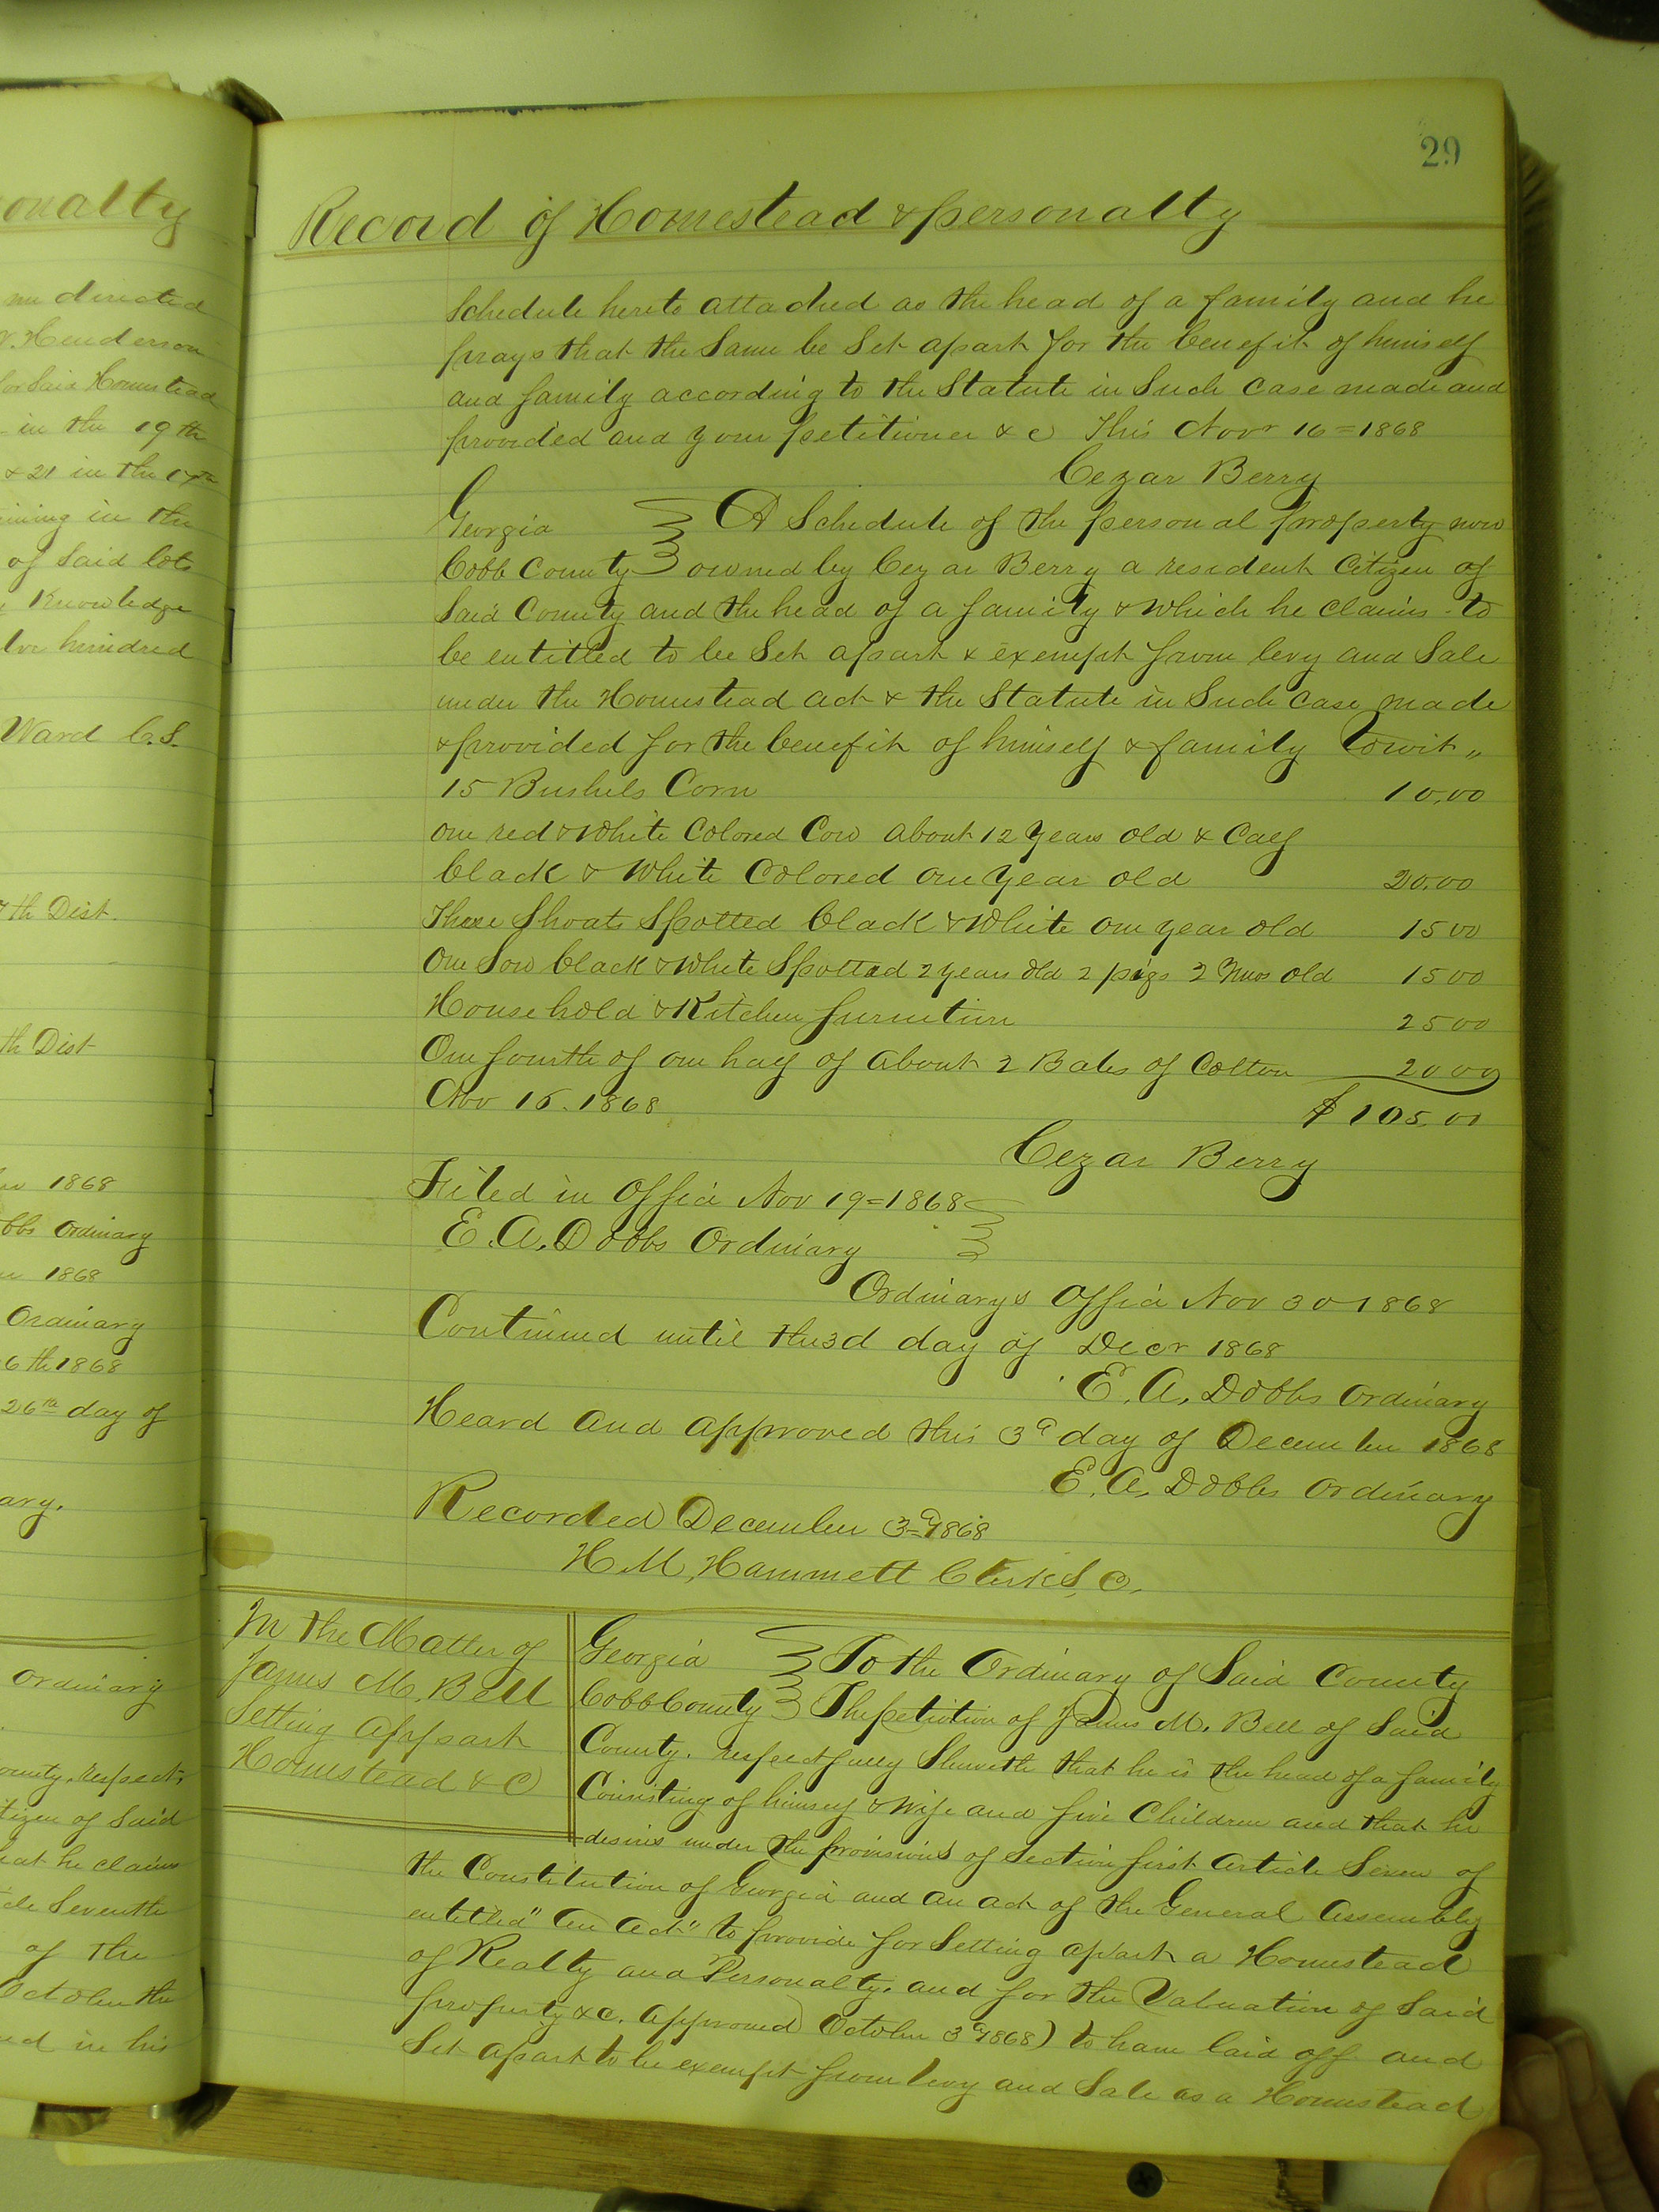 onalty
me directed
Henderson
for said Homestead
in the 19th
& 21 in the 17th
ining in the
of said lots
Knowledge
hundred
Ward C.S.
7th Dist.
th Dist
1868
bbs Ordinary
1868
Ordinary
6th 1868
26th day of
ary.
Ordinary
ounty, respect,
tizen of Said
hat he claims
cle Seventh
of the
October the
ed in his
29
Record of Homestead & personalty
Schedule hereto attached as the head of a family and he
prays that the Same be Set apart for the benefit of himself
and family according to the Statute in Such case made and
provided and your petitioner &c This Novr 16=1868
Cezar Berry
Georgia A Schedule of the personal property now
Cobb County owned by Cezar Berry a resident Citizen of
Said County and the head of a family & which he claims to
be entitled to be Set apart & exempt from levy and Sale
under the Homestead act & the Statute in Such case made
& provided for the benefit of himself & family Towit "
15 Bushels Corn 10.00
one red & White Colored Cow about 12 years old & Calf
black & White Colored one year old 20.00
Three Shoats Spotted black & White one year old 15 00
One Sow black & White Spotted 2 years old 2 pigs 2 mos old 15 00
Household & Kitchen furniture 25 00
One fourth of one half of about 2 Bales of Cotton 20 00
Nov 16. 1868 $105.00
Cezar Berry
Filed in Office Nov 19=1868
E. A. Dobbs Ordinary
Ordinarys Office Nov 30 1868
Continued until the 3d day of Decr 1868
E. A. Dobbs Ordinary
Heard and approved this 3d day of December 1868
E. A. Dobbs Ordinary
Recorded December 3d 1868
H. M. Hammett Clerk S. C.
In the Matter of
James M. Bell
Setting Appart
Homestead &C
Georgia To the Ordinary of Said County
Cobb County The petition of James M. Bell of Said
County. respectfully Sheweth that he is the head of a family
Consisting of himself & Wife and five Children and that he
desires under the provisions of Section first Article Seven of
the Constitution of Georgia and an act of the General Assembly
entitled "An Act" to provide for Setting apart a Homestead
of Realty and Personalty. and for the Valuation of Said
property &c. Approved October 3d 1868) to have laid off and
Set apart to be exempt from levy and Sale as a Homestead